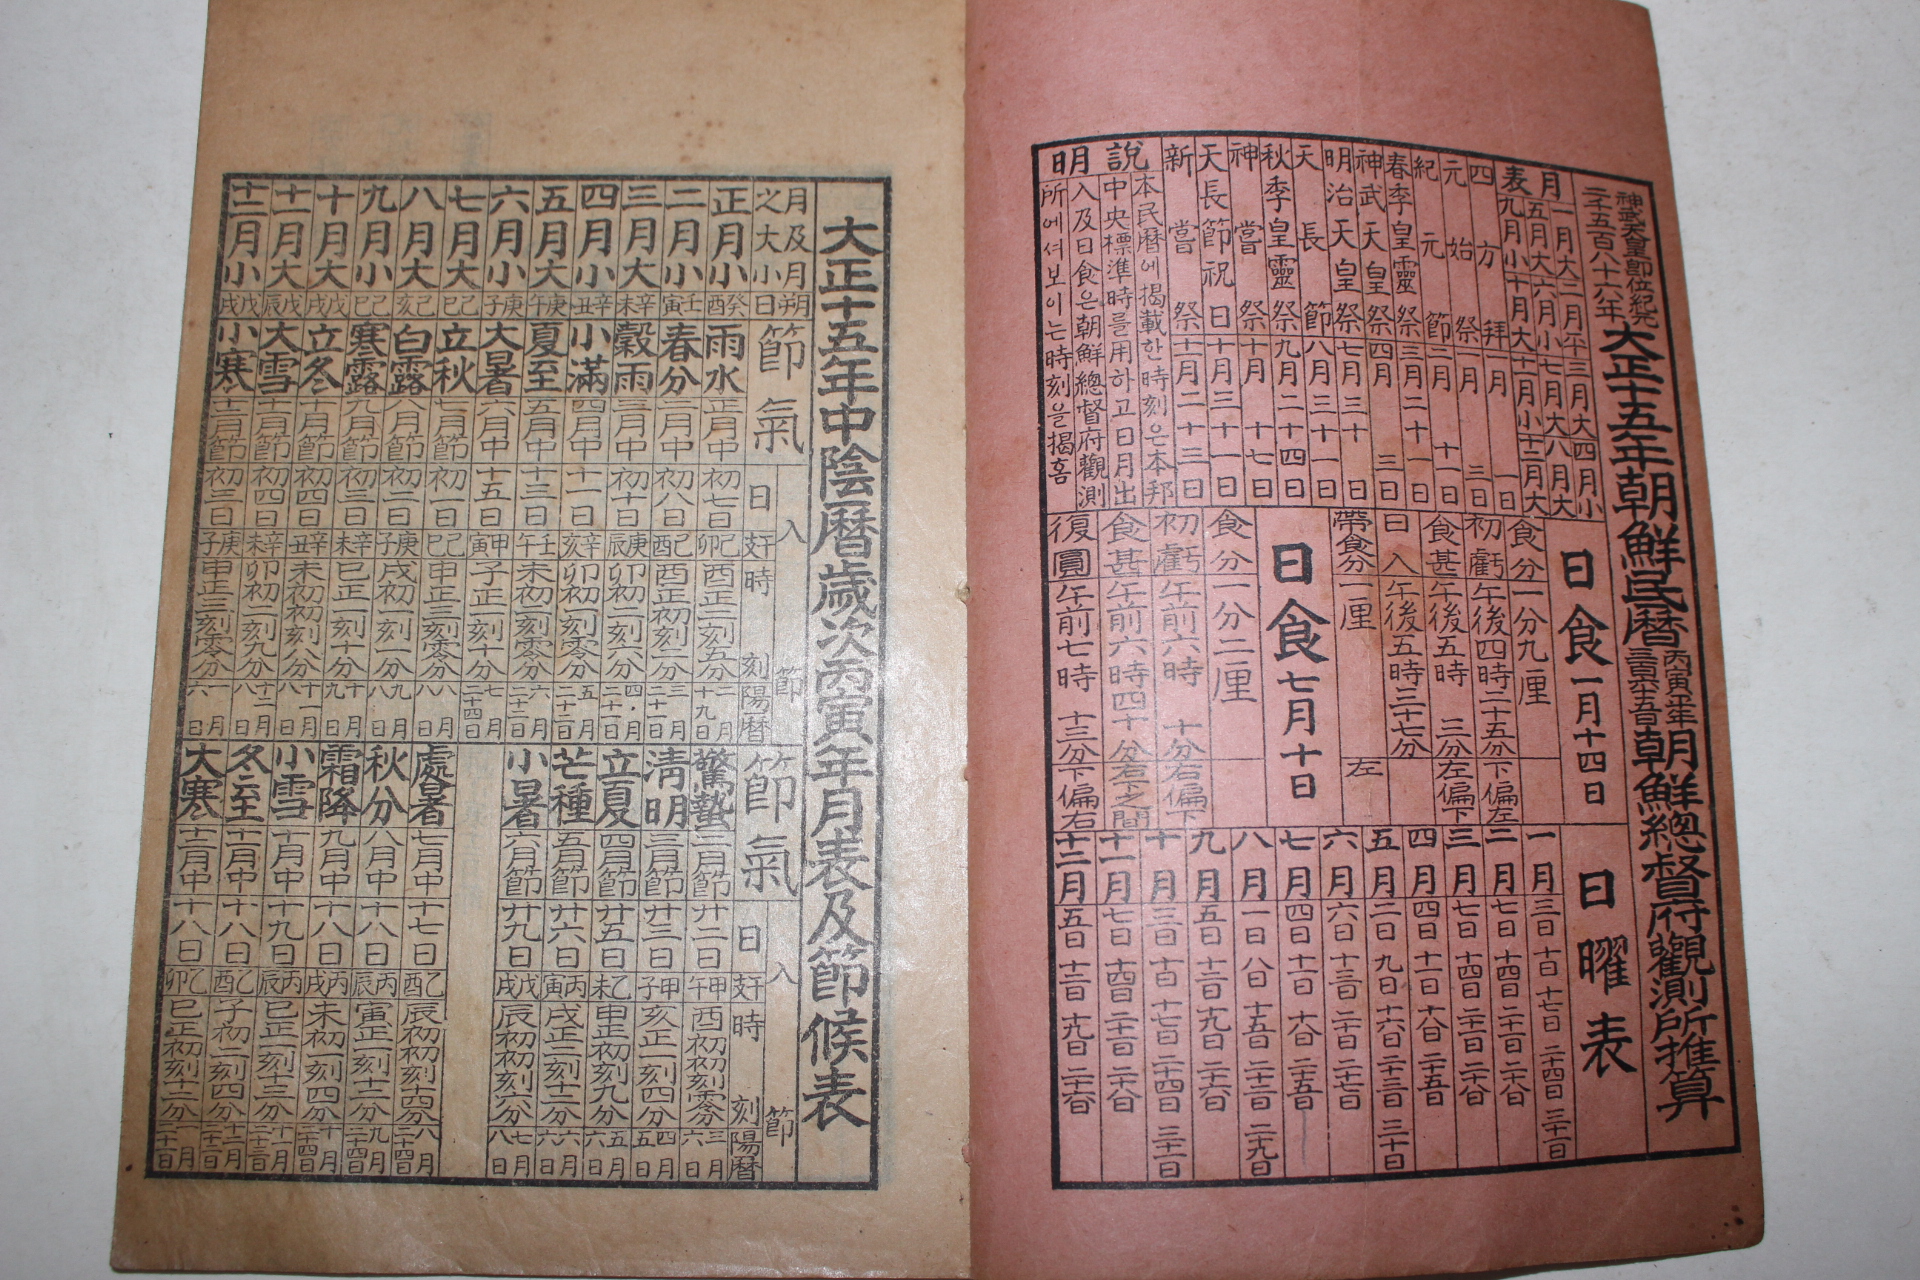 神武天皇卽位紀元
二千五百八十六年
大正十五年朝鮮民曆
丙寅平年
三百六十五日
朝鮮總督府觀測所推算
月表
一月大二月平三月大四月小
五月大六月小七月大八月大
九月小十月大十一月小十二月大
四方拜 一月 一日
元始祭 一月 三日
紀元節 二月 十一日
春季皇靈祭 三月二十一日
神武天皇祭 四月 三日
明治天皇祭 七月三十日
天長節 八月三十一日
秋季皇靈祭 九月二十四日
神嘗祭 十月 十七日
天長節祝日 十月三十一日
新嘗祭 十一月二十三日
說明
本民曆에揭載한時刻은本邦
中央標準時를用하고日月出
入及日食은朝鮮總督府觀測
所에셔보이는時刻을揭홈
日食 一月十四日
食分 一分九厘
初虧 午後四時二十五分 下偏左
食甚 午後五時 三分 左偏下
日入 午後五時三十七分
帶食分 一厘 左
日食 七月十日
食分 一分二厘
初虧 午前六時 十分 右偏下
食甚 午前六時四十分 右下之間
復圓 午前七時 十三分 下偏右
日曜表
一月 三日 十日 十七日 二十四日 三十一日
二月 七日 十四日 二十一日 二十八日
三月 七日 十四日 二十一日 二十八日
四月 四日 十一日 十八日 二十五日
五月 二日 九日 十六日 二十三日 三十日
六月 六日 十三日 二十日 二十七日
七月 四日 十一日 十八日 二十五日
八月 一日 八日 十五日 二十二日 二十九日
九月 五日 十二日 十九日 二十六日
十月 三日 十日 十七日 二十四日 三十一日
十一月 七日 十四日 二十一日 二十八日
十二月 五日 十二日 十九日 二十六日
大正十五年中陰曆歲次丙寅年月表及節候表
月及月之大小 朔日 節氣 入節 日 干支 時刻 陽曆 節氣 入節 日 干支 時刻 陽曆
正月小 癸酉 雨水 正月中 初七日 己卯 酉正二刻五分 二月十九日 驚蟄 二月節 廿二日 甲午 酉初初刻零分 三月六日
二月小 壬寅 春分 二月中 初八日 己酉 酉正初刻二分 三月二十一日 淸明 三月節 廿三日 甲子 亥正一刻四分 四月五日
三月大 辛未 穀雨 三月中 初十日 庚辰 卯初二刻六分 四月二十一日 立夏 四月節 廿五日 乙未 申正初刻九分 五月六日
四月小 辛丑 小滿 四月中 十一日 辛亥 卯初一刻零分 五月二十二日 芒種 五月節 廿六日 丙寅 戌正二刻十二分 六月六日
五月大 庚午 夏至 五月中 十三日 壬午 未初二刻零分 六月二十二日 小暑 六月節 廿九日 戊戌 辰初初刻六分 七月八日
六月小 庚子 大暑 六月中 十五日 甲寅 子正一刻十分 七月二十四日
七月大 己巳 立秋 七月節 初一日 己巳 申正三刻零分 八月八日 處暑 七月中 十七日 乙酉 辰初初刻四分 八月二十四日
八月大 己亥 白露 八月節 初二日 庚子 戌初一刻一分 九月八日 秋分 八月中 十八日 丙辰 寅正一刻十二分 九月二十四日
九月小 己巳 寒露 九月節 初三日 辛未 巳正一刻十分 十月九日 霜降 九月中 十八日 丙戌 未初一刻四分 十月二十四日
十月大 戊戌 立冬 十月節 初四日 辛丑 未初初刻八分 十一月八日 小雪 十月中 十九日 丙辰 巳正一刻十三分 十一月二十三日
十一月大 戊辰 大雪 十一月節 初四日 辛未 卯初二刻九分 十二月八日 冬至 十一月中 十八日 乙酉 子初二刻四分 十二月二十二日
十二月小 戊戌 小寒 十二月節 初三日 庚子 申正三刻零分 一月六日 大寒 十二月中 十八日 乙卯 巳正初刻十二分 一月二十一日